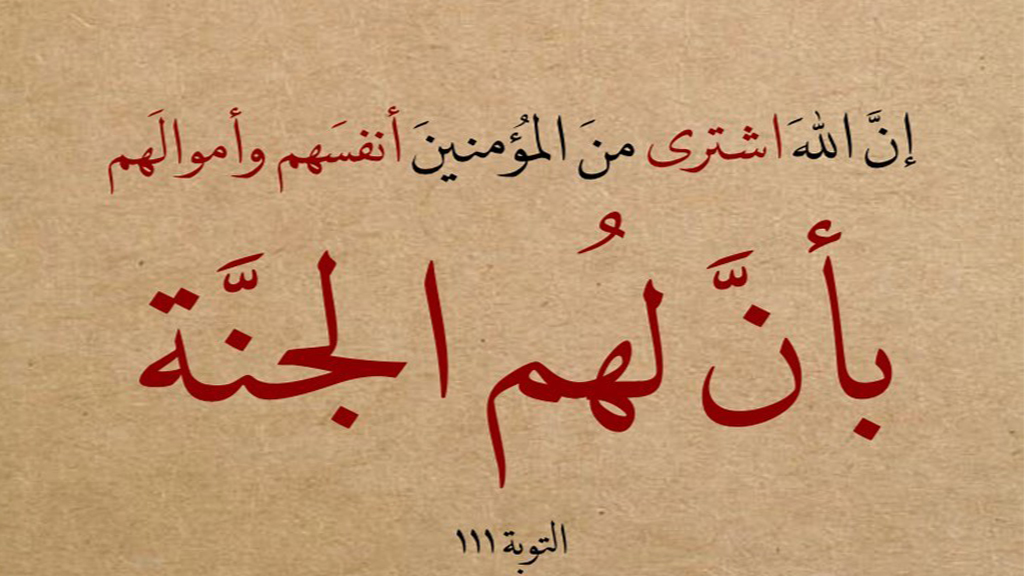 إنَّ اللهَ اشترى منَ المؤُمنينَ أنفسَهم وأموالَهم
بأنَّ لهُم الجنَّة
التوبة ١١١